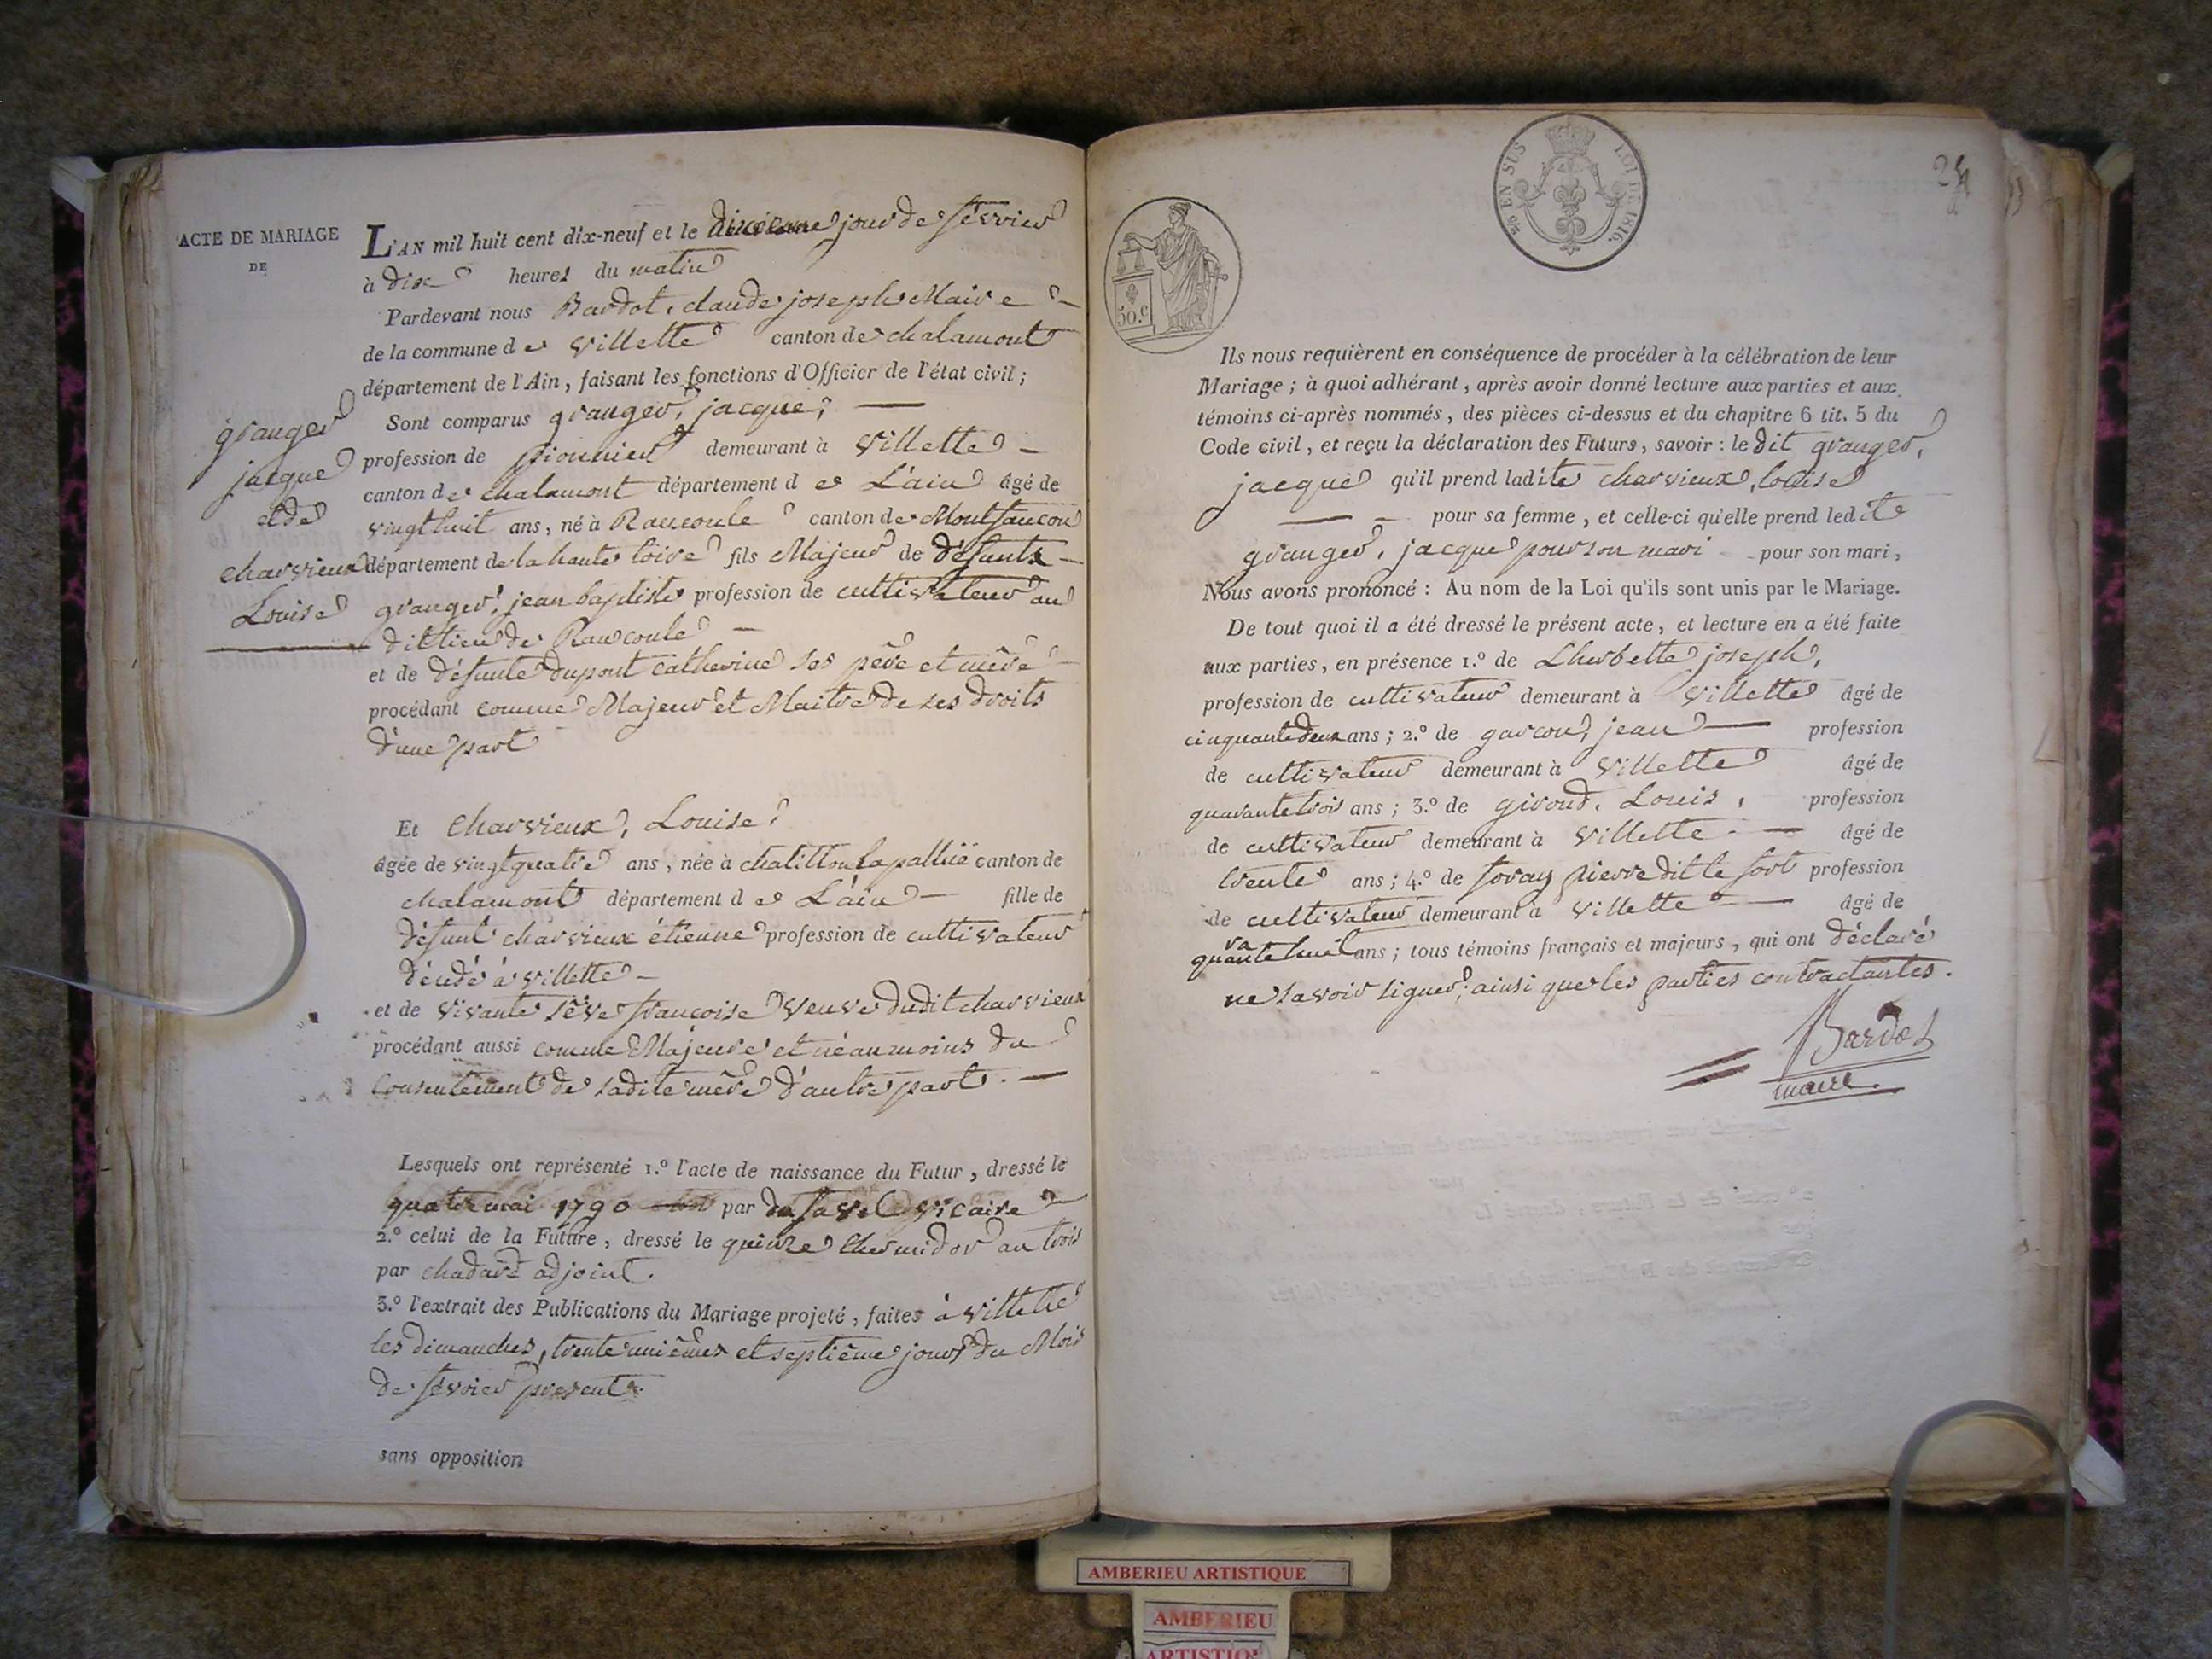 ACTE DE MARIAGE
DE
granger
jacque
et de
charvieux
Louise
L'AN mil huit cent dix-neuf et le dixième jour de février
à dix heures du matin
Pardevant nous Bardot, claude joseph Maire
de la commune de villette canton de chalamont
département de l'Ain, faisant les fonctions d'Officier de l'état civil;
Sont comparus granger, jacque,
profession de pionnier demeurant à villette
canton de chalamont département de L'ain âgé de
vingt huit ans, né à Raucoule canton de Montfaucon
département de la haute loire fils Majeur de défunts
granger, jean baptiste profession de cultivateur au
dit lieu de Raucoule
et de défunte dupont catherine ses père et mère
procédant comme Majeur et Maitre de ses droits
d'une part
Et charvieux, Louise,
âgée de vingt quatre ans, née à chatillon la pallüe canton de
chalamont département de L'ain fille de
défunt charvieux étienne profession de cultivateur
décédé à villette
et de vivante sève françoise veuve dudit charvieux
procédant aussi comme Majeure et néanmoins du
consentement de sadite mère d'autre part.
Lesquels ont représenté 1.º l'acte de naissance du Futur, dressé le
quatre mai 1790 par vicaire
2.º celui de la Future, dressé le quinze thermidor an trois
par chadard adjoint.
3.º l'extrait des Publications du Mariage projeté, faites à villette
les dimanches, trente unième et septième jours du Mois
de février present.
sans opposition
EN SUS LOI DE 1816.
50.c
Ils nous requièrent en conséquence de procéder à la célébration de leur
Mariage; à quoi adhérant, après avoir donné lecture aux parties et aux
témoins ci-après nommés, des pièces ci-dessus et du chapitre 6 tit. 5 du
Code civil, et reçu la déclaration des Futurs, savoir: le dit granger,
jacque qu'il prend ladite charvieux, louise
pour sa femme, et celle-ci qu'elle prend ledite
granger, jacque pour son mari pour son mari,
Nous avons prononcé: Au nom de la Loi qu'ils sont unis par le Mariage.
De tout quoi il a été dressé le présent acte, et lecture en a été faite
aux parties, en présence 1.º de Lherbette joseph,
profession de cultivateur demeurant à villette âgé de
cinquante deux ans; 2.º de garcon, jean profession
de cultivateur demeurant à villette âgé de
quarante trois ans; 3.º de giroud, Louis, profession
de cultivateur demeurant à villette âgé de
trente ans; 4.º de foray pierre dit le fort profession
de cultivateur demeurant à villette âgé de
quarante huit ans; tous témoins français et majeurs, qui ont déclaré
ne savoir signer, ainsi que les parties contractantes.
Bardot
maire.
AMBERIEU ARTISTIQUE
AMBERIEU
ARTISTIQUE